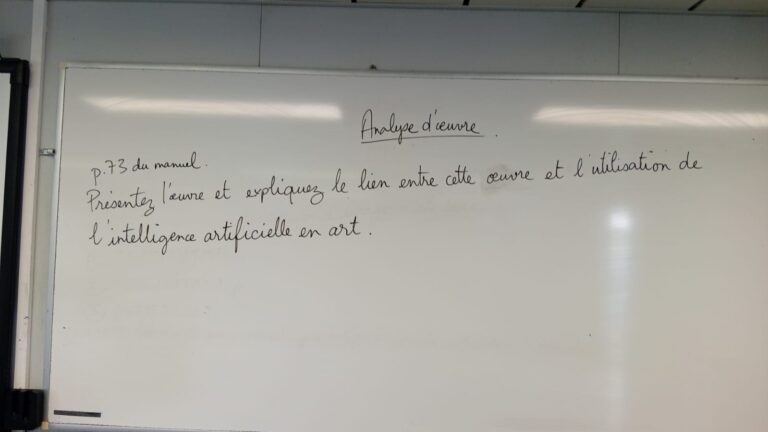 Analyse d'œuvre.
p.73 du manuel.
Présentez l'œuvre et expliquez le lien entre cette œuvre et l'utilisation de
l'intelligence artificielle en art.